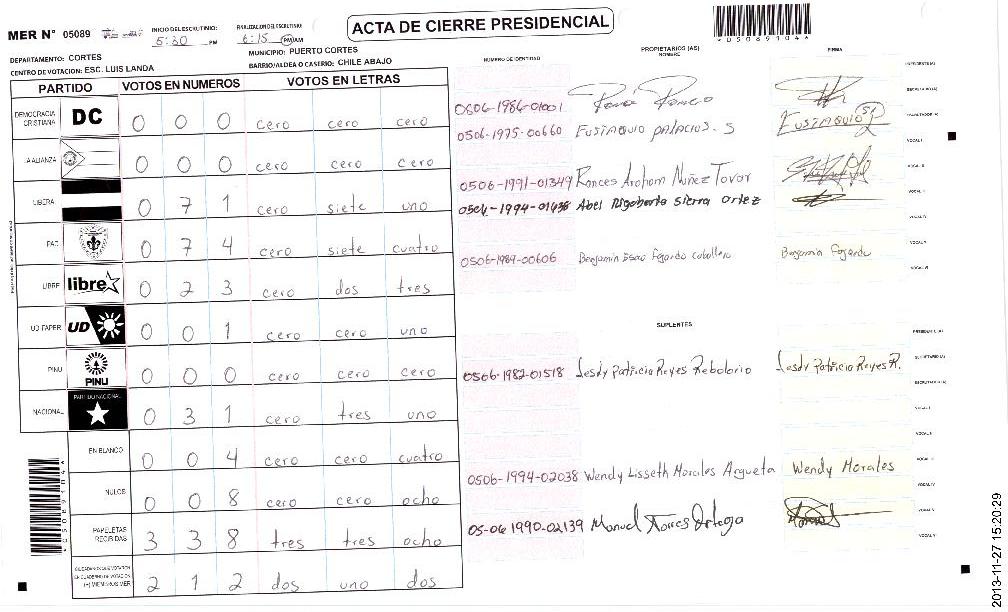 ACTA DE CIERRE PRESIDENCIAL
*05089104*
MER N° 05089
INICIO DEL ESCRUTINIO: 5:30 PM
FINALIZACION DEL ESCRUTINIO: 6:15 PM/AM
DEPARTAMENTO: CORTES
MUNICIPIO: PUERTO CORTES
CENTRO DE VOTACION: ESC. LUIS LANDA
BARRIO/ALDEA O CASERIO: CHILE ABAJO
PARTIDO VOTOS EN NUMEROS VOTOS EN LETRAS
DEMOCRACIA CRISTIANA DC 0 0 0 cero cero cero
LA ALIANZA 0 0 0 cero cero cero
LIBERA 0 7 1 cero siete uno
PAC 0 7 4 cero siete cuatro
LIBRE libre 0 2 3 cero dos tres
UD FAPER UD 0 0 1 cero cero uno
PINU PINU 0 0 0 cero cero cero
NACIONAL PARTIDO NACIONAL 0 3 1 cero tres uno
EN BLANCO 0 0 4 cero cero cuatro
NULOS 0 0 8 cero cero ocho
PAPELETAS RECIBIDAS 3 3 8 tres tres ocho
CIUDADANOS QUE VOTARON EN CUADERNO DE VOTACION (+) MIEMBROS MER 2 1 2 dos uno dos
*05089104*
PROPIETARIOS (AS)
NUMERO DE IDENTIDAD NOMBRE FIRMA
0506-1986-01001
0506-1975-00660 EUSTAQUIO PALACIOS. S EUSTAQUIO
0506-1991-01349 Nuñez Tovar
0506-1994-01638 Abel Rigoberto Sierra Ortez
0506-1989-00606 Benjamin Isaac Fajardo Caballero Benjamin Fajardo
SUPLENTES
0506-1982-01518 Lesdy Patricia Reyes Rebolorio Lesdy Patricia Reyes R.
0506-1994-02038 Wendy Lisseth Morales Argueta Wendy Morales
05-06 1990-02139 Manuel Torres Ortega
SECRETARIO (A)
ESCRUTADOR (A)
VOCAL I
VOCAL II
VOCAL IV
VOCAL V
2013-11-27 15:20:29